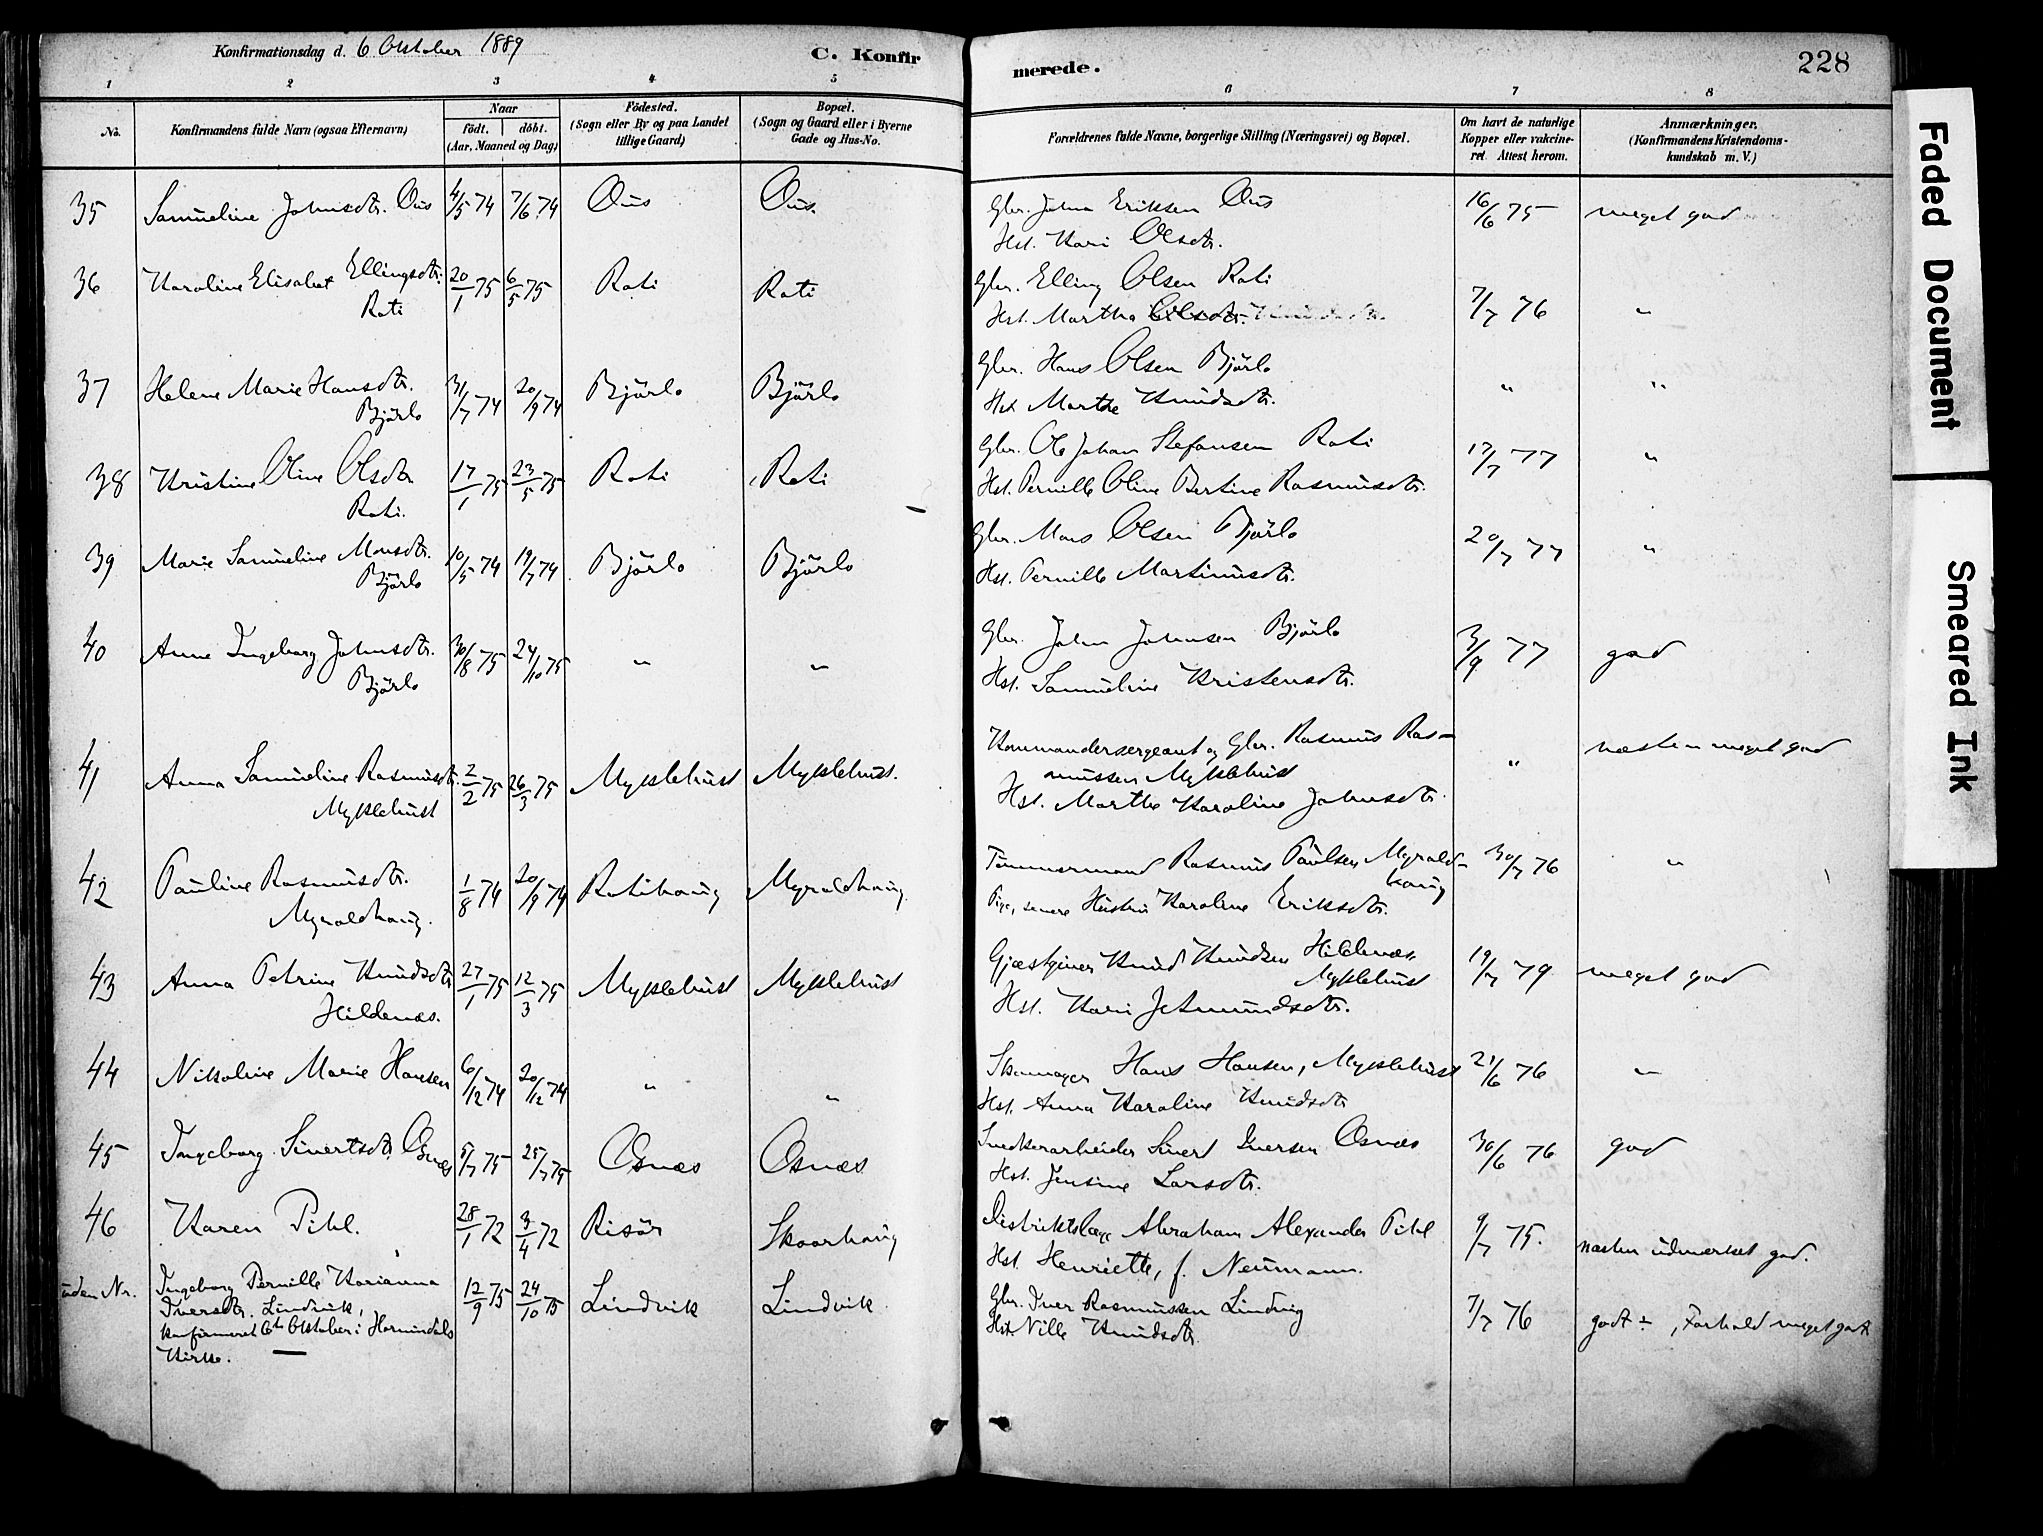 Konfirmationsdag d. 6 Oktober 1889
C. Konfirmerede.
228
1 2 3 4 5 6 7 8
No.
Konfirmandens fulde Navn (ogsaa Efternavn)
Naar
født. døbt.
(Aar, Maaned og Dag)
Fødested.
(Sogn eller By og paa Landet
tillige Gaard)
Bopæl.
(Sogn og Gaard eller i Byerne
Gade og Hus-No.
Forældrenes fulde Navne, borgerlige Stilling (Næringsvei) og Bopæl.
Om havt de naturlige
Kopper eller vakcine-
ret Attest herom.
Anmærkninger.
(Konfirmandens Kristendoms-
kundskab m. V.)
35 Samueline Johnsdtr. Ous 4/5 74 7/6 74 Ous Ous. Gbr. John Eriksen Ous 16/6 75 meget god
Hst. Kari Olsdtr.
36 Karoline Elisabet Ellingsdtr. 20/1 75 6/5 75 Roti Roti Gbr. Elling Olsen Roti 7/7 76 "
Roti Hst. Martha Olsdtr.
37 Helene Marie Hansdtr. 31/7 74 20/9 74 Bjørlo Bjørlo Gbr. Hans Olsen Bjørlo " "
Bjørlo Hst. Marthe Knudsdtr.
38 Kristine Oline Olsdtr 17/1 75 23/5 75 Roti Roti Gbr. Ole Johan Stefansen Roti 17/7 77 "
Roti. Hst. Pernille Oline Bertine Rasmusdtr.
39 Marie Samueline Monsdtr. 10/5 74 19/7 74 Bjørlo Bjørlo Gbr. Mons Olsen Bjørlo 20/7 77 "
Bjørlo Hst. Pernille Martinusdtr.
40 Anne Ingeborg Johnsdtr. 30/8 75 24/10 75 " " Gbr. John Johnsen Bjørlo 3/9 77 god
Bjørlo Hst. Samueline Kristensdtr.
41 Anna Samueline Rasmusdtr. 2/2 75 26/3 75 Myklebust Myklebust. Kommandersergeant og Gbr. Rasmus Ras- " næsten meget god
Myklebust mussen Myklebust
Hst. Marthe Karoline Johnsdtr.
42 Pauline Rasmusdtr. 1/8 74 20/9 74 Rotihaug Myroldhaug. Tømmermand Rasmus Paulsen Myrold- 30/7 76 "
Myroldhaug. haug
Pige, senere Hustru Karoline Eriksdtr.
43 Anna Petrine Knudsdtr 27/1 75 12/3 75 Myklebust Myklebust Gjæstgiver Knud Knudsen Hildenæs 19/7 79 meget god
Hildenæs. Myklebust
Hst. Kari Jetmundsdtr.
44 Nikoline Marie Hansen 6/12 74 20/12 74 " " Skomager Hans Hansen, Myklebust 21/6 76 "
Hst. Anna Karoline Knudsdtr
45 Ingeborg Sivertsdtr. Osnæs 5/7 75 25/7 75 Osnæs Osnæs Snedkerarbeider Sivert Iversen Osnæs 30/6 76 god
Hst. Jensine Larsdtr.
46 Karen Pihl. 28/1 72 3/4 72 Risør Skaarhaug Distriktslæge Abraham Alexander Pihl 9/7 75. næsten udmærket god.
Hst. Henriette, f. Neumann.
uden Nr. Ingeborg Pernille Karianna 12/9 75 24/10 75 Lindvik Lindvik Gbr. Iver Rasmussen Lindvig 7/7 76 godt ÷, Forhold meget godt
Iversdtr. Lindvik, Hst. Nille Knudsdtr.
konfirmeret 6te Oktober i Hornindals
Kirke.
Faded Document
Smeared Ink